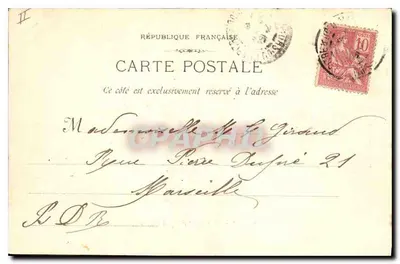 II
RÉPUBLIQUE FRANÇAISE
CARTE POSTALE
Ce côté est exclusivement réservé à l'adresse
10
Mademoiselle M. L. Giraud
Rue Pierre Dupré 21
Marseille
B D R